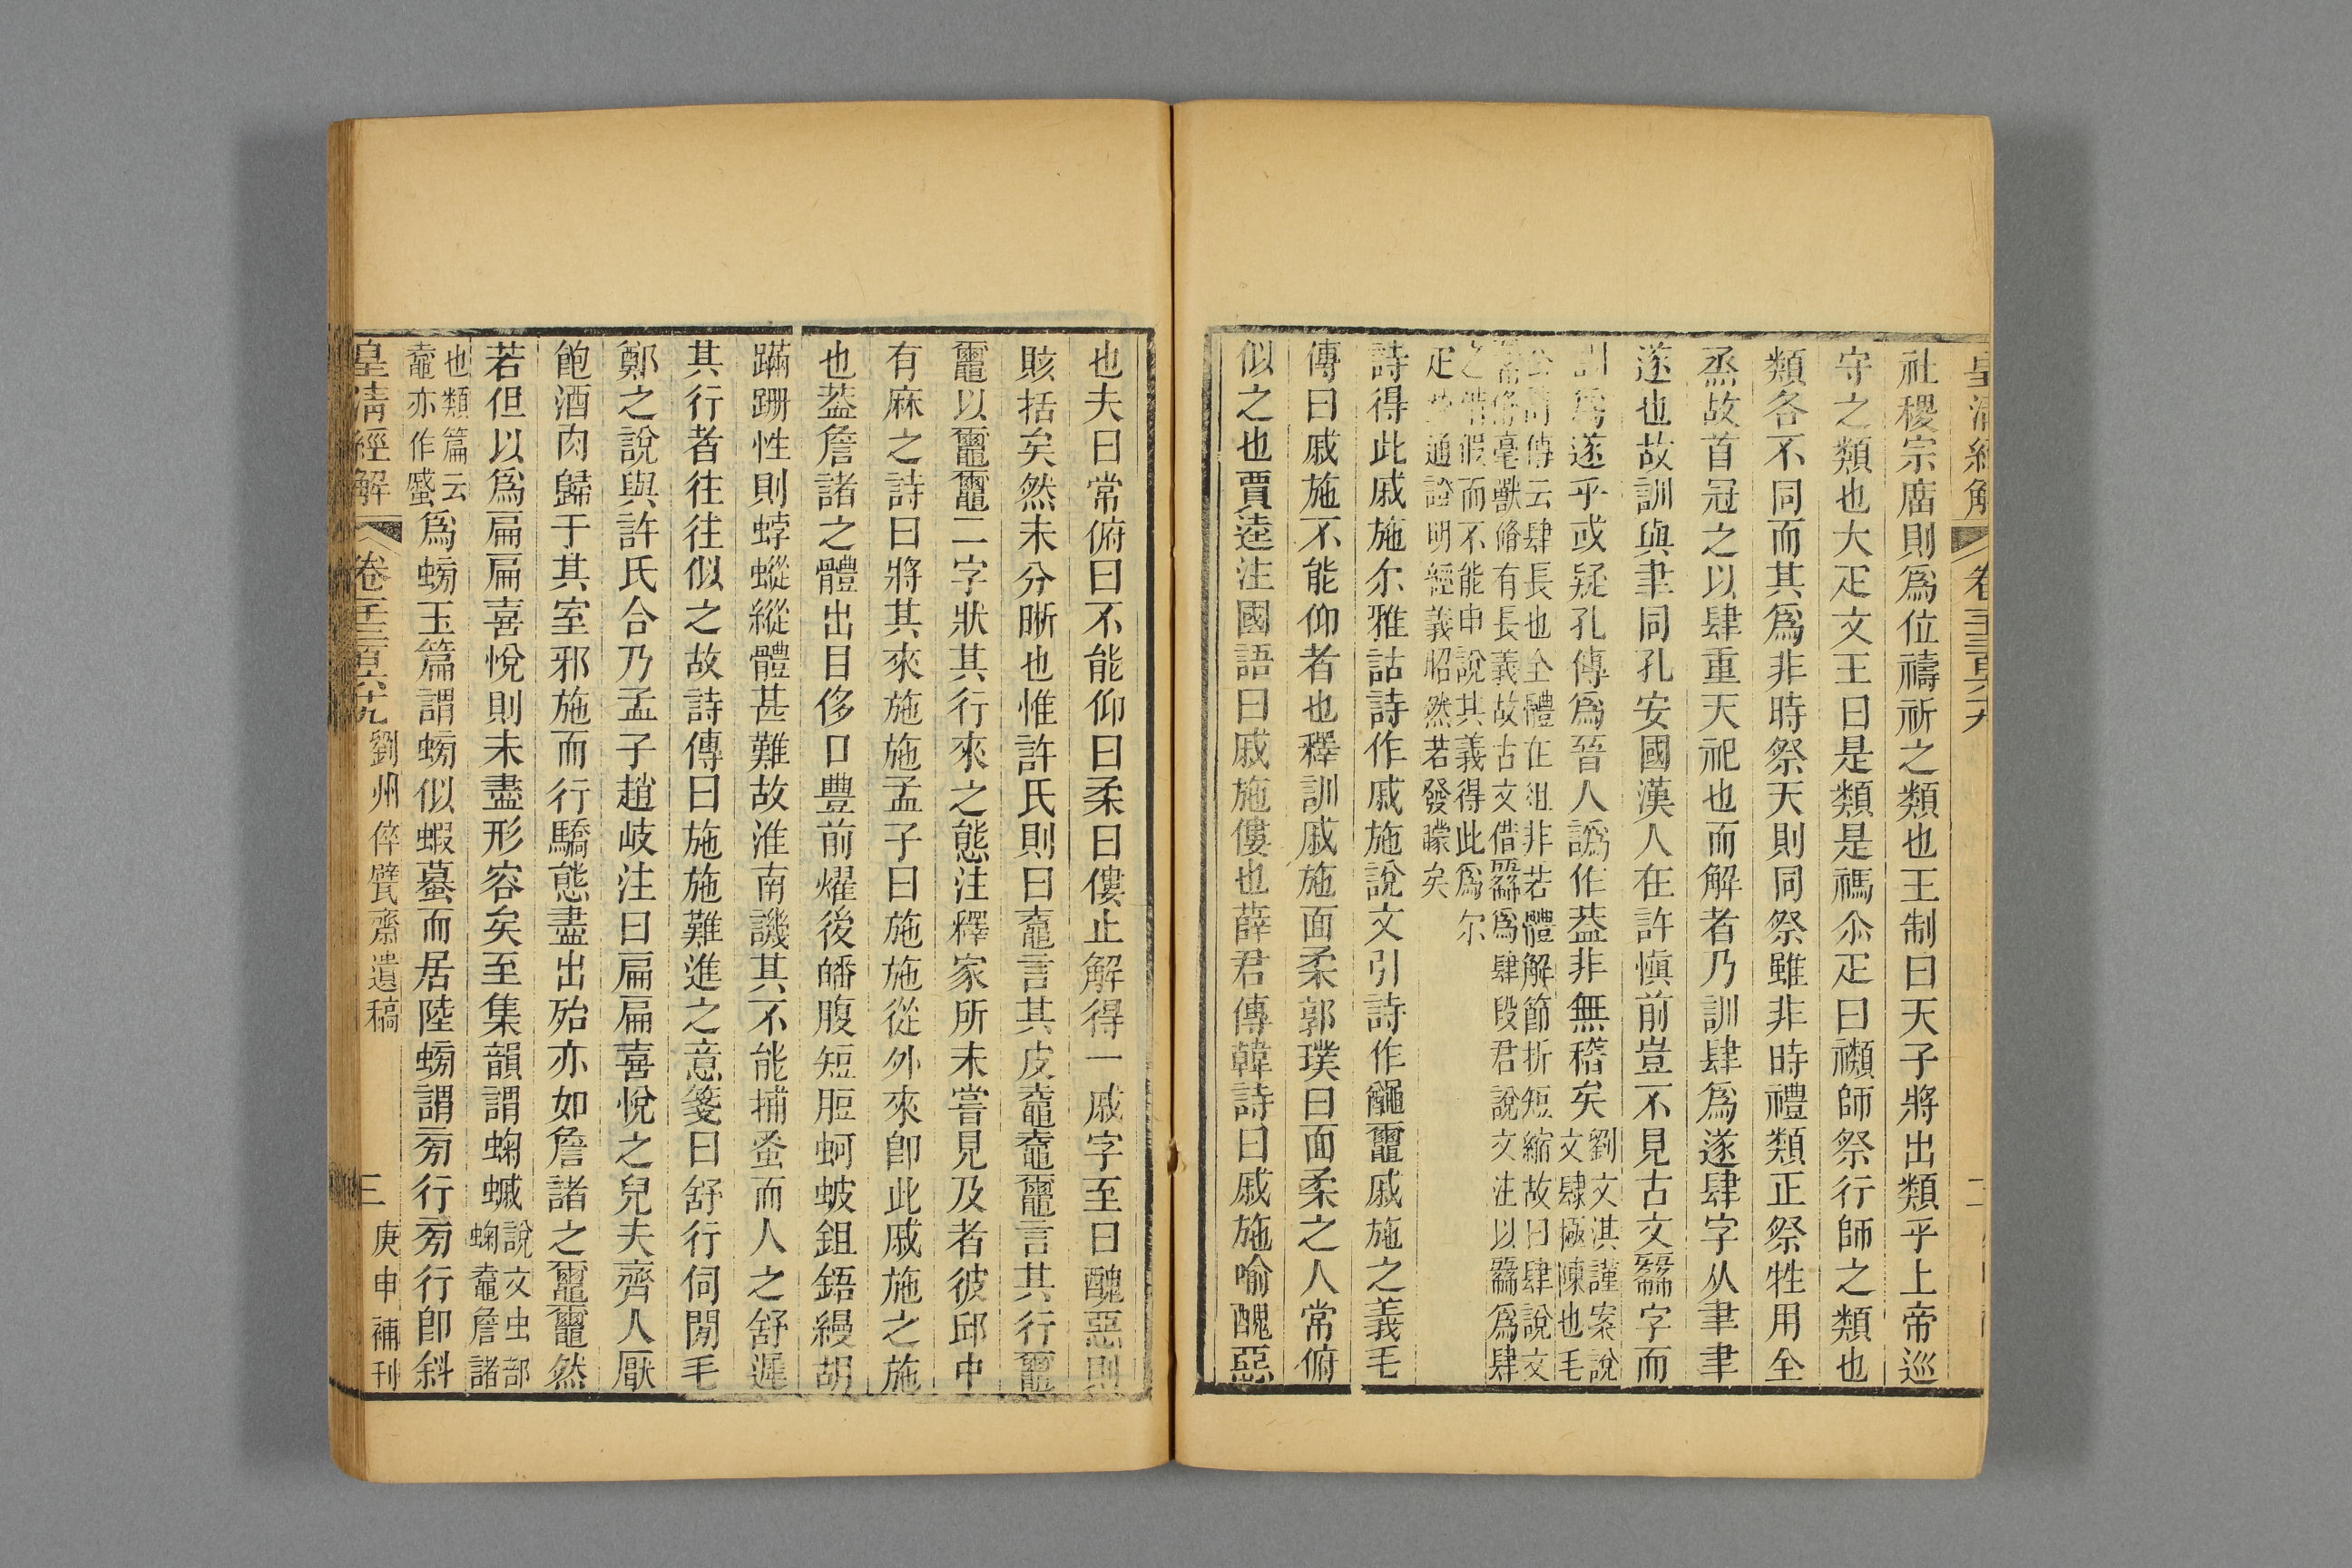 皇清經解 卷一千三百六十九 二
社稷宗廟則爲位禱祈之類也王制曰天子將出類乎上帝巡
守之類也大疋文王曰是類是禡尒疋曰禷師祭行師之類也
類各不同而其爲非時祭天則同祭雖非時禮類正祭牲用全
烝故首冠之以肆重天祀也而解者乃訓肆爲遂肆字从聿聿
遂也故訓與聿同孔安國漢人在許愼前豈不見古文𨽸字而
訓爲遂乎或疑孔傳爲晉人譌作葢非無稽矣劉文淇謹案說
文肆極陳也毛
公詩傳云肆長也全體在俎非若體解節折短縮故曰肆說文
𢑹脩毫獸脩有長義故古文借𢑹爲肆段君說文注以𢑹爲肆
之借假而不能申說其義得此爲尔
疋 通證明經義昭然若發矇矣
詩得此戚施尔雅詁詩作戚施說文引詩作𪓰𪓿戚施之義毛
傳曰戚施不能仰者也釋訓戚施面柔郭璞曰面柔之人常俯
似之也賈逵注國語曰戚施僂也薛君傳韓詩曰戚施喻醜惡
也夫曰常俯曰不能仰曰柔曰僂止解得一戚字至曰醜惡則
賅括矣然未分晰也惟許氏則曰𪓰言其皮𪓰𪓰𪓿言其行𪓿
𪓿以𪓿𪓿二字狀其行來之態注釋家所未嘗見及者彼邱中
有麻之詩曰將其來施施孟子曰施施從外來卽此戚施之施
也葢詹諸之體出目侈口豐前燿後皤腹短脰蚵蚾鉏鋙縵胡
蹣跚性則蜉蝣縱體甚難故淮南譏其不能捕蚤而人之舒遲
其行者往往似之故詩傳曰施施難進之意箋曰舒行伺閒毛
鄭之說與許氏合乃孟子趙岐注曰扁扁喜悅之皃夫齊人厭
飽酒肉歸于其室邪施而行驕態盡出殆亦如詹諸之𪓿𪓿然
若但以爲扁扁喜悅則未盡形容矣至集韻謂蜠𧐶說文虫部
蜠𪓰詹諸
也類篇云
𪓰亦作𧐶爲螃玉篇謂螃似蝦蟇而居陸螃謂旁行旁行卽斜
皇清經解 卷一千三百六十九 劉州倅甓齋遺稿 三 庚申補刊